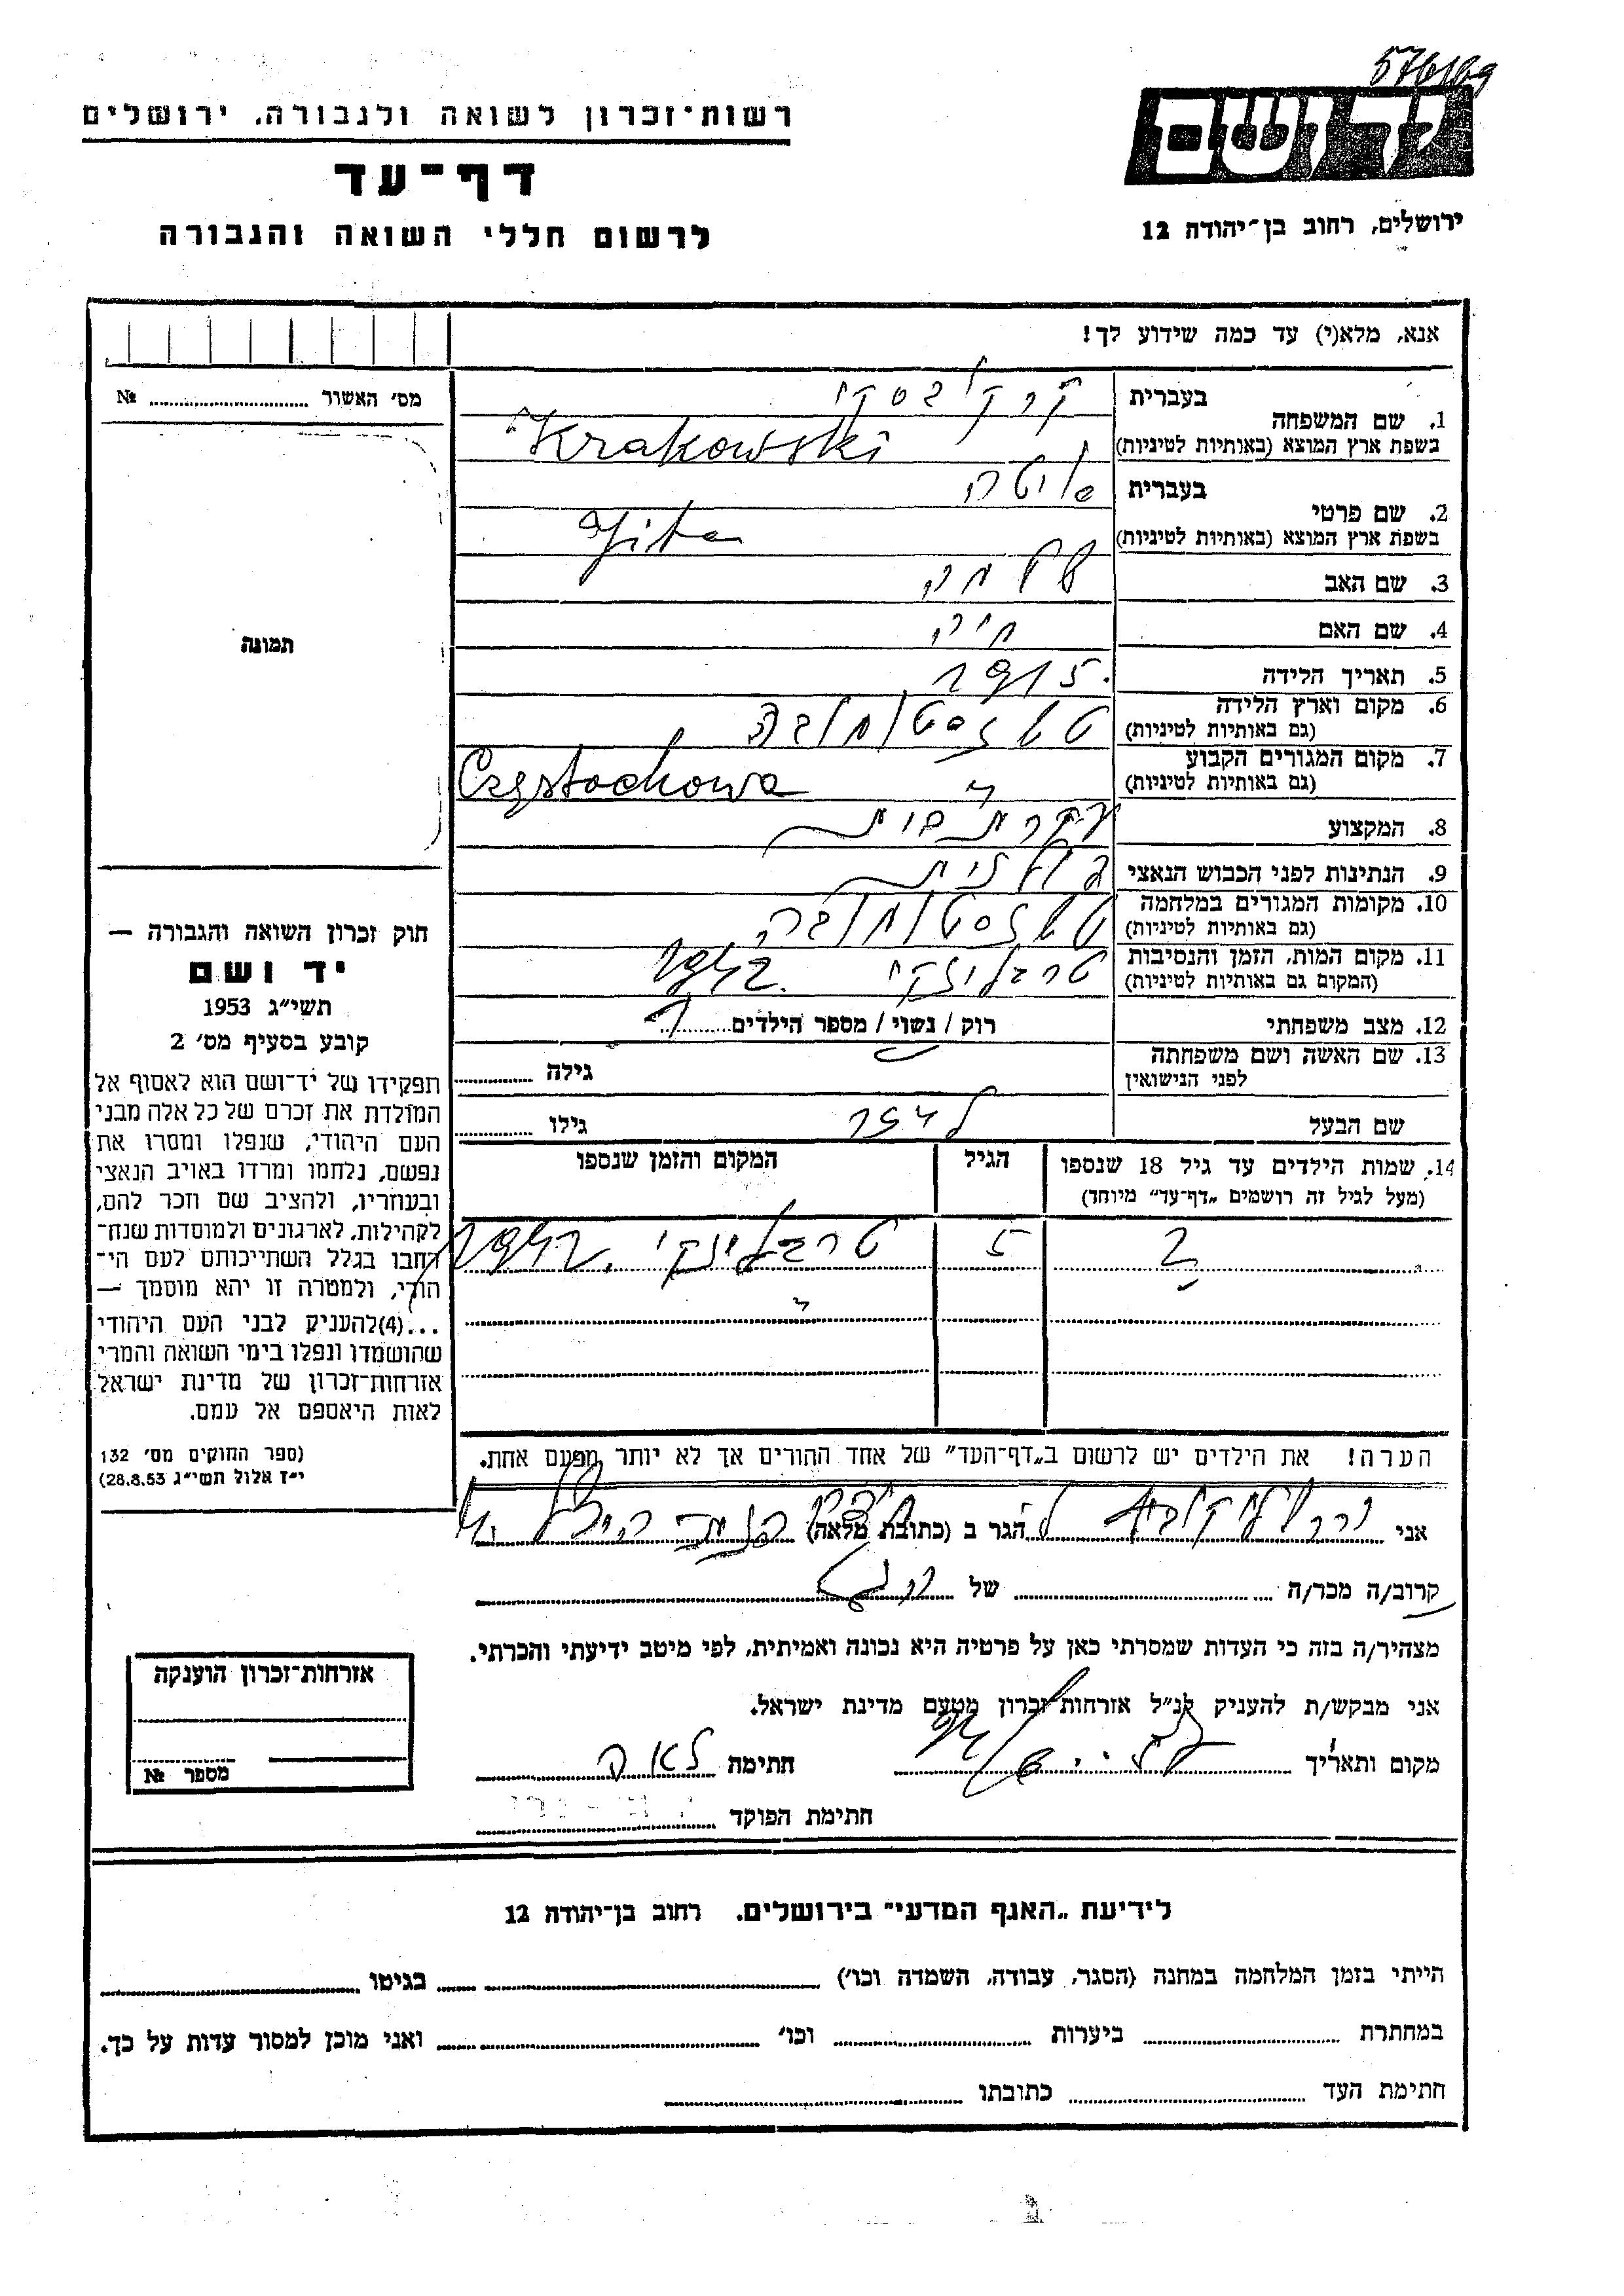 576169
יד ושם
ירושלים, רחוב בן־יהודה 12
רשות־זכרון לשואה ולגבורה, ירושלים
דף־עד
לרשום חללי השואה והגבורה
אנא, מלא(י) עד כמה שידוע לך!
מס׳ האשור ........ №
תמונה
בעברית קרקובסקי
1. שם המשפחה
בשפת ארץ המוצא (באותיות לטיניות) Krakowski
בעברית גיטה
2. שם פרטי
בשפת ארץ המוצא (באותיות לטיניות) Gita
3. שם האב שלמה
4. שם האם חיה
5. תאריך הלידה 1915
6. מקום וארץ הלידה
(גם באותיות לטיניות)
7. מקום המגורים הקבוע
(גם באותיות לטיניות) Częstochowa
8. המקצוע עקרת בית
9. הנתינות לפני הכבוש הנאצי פולנית
10. מקומות המגורים במלחמה
(גם באותיות לטיניות)
11. מקום המות, הזמן והנסיבות 1942
(המקום גם באותיות לטיניות)
12. מצב משפחתי רוק / נשוי / מספר הילדים 1
13. שם האשה ושם משפחתה גילה
לפני הנישואין
שם הבעל גילו
14. שמות הילדים עד גיל 18 שנספו הגיל המקום והזמן שנספו
(מעל לגיל זה רושמים „דף־עד״ מיוחד)
? 5 1942
הערה! את הילדים יש לרשום ב„דף־העד״ של אחד ההורים אך לא יותר מפעם אחת.
חוק זכרון השואה והגבורה —
יד ושם
תשי״ג 1953
קובע בסעיף מס׳ 2
תפקידו של יד־ושם הוא לאסוף אל
המולדת את זכרם של כל אלה מבני
העם היהודי, שנפלו ומסרו את
נפשם, נלחמו ומרדו באויב הנאצי
ובעוזריו, ולהציב שם וזכר להם,
לקהילות, לארגונים ולמוסדות שנח־
רבו בגלל השתייכותם לעם הי־
הודי, ולמטרה זו יהא מוסמך —
...(4)להעניק לבני העם היהודי
שהושמדו ונפלו בימי השואה והמרי
אזרחות־זכרון של מדינת ישראל
לאות היאספם אל עמם.
(ספר החוקים מס׳ 132
י״ז אלול תשי״ג 28.8.53)
אני הגר ב (כתובת מלאה)
קרוב/ה מכר/ה של
מצהיר/ה בזה כי העדות שמסרתי כאן על פרטיה היא נכונה ואמיתית, לפי מיטב ידיעתי והכרתי.
אני מבקש/ת להעניק לנ״ל אזרחות־זכרון מטעם מדינת ישראל.
מקום ותאריך חתימה לאה
חתימת הפוקד
אזרחות־זכרון הוענקה
מספר №
לידיעת „האגף המדעי״ בירושלים, רחוב בן־יהודה 12
הייתי בזמן המלחמה במחנה (הסגר, עבודה, השמדה וכו׳) בגיטו
במחתרת ביערות וכו׳ ואני מוכן למסור עדות על כך.
חתימת העד כתובתו